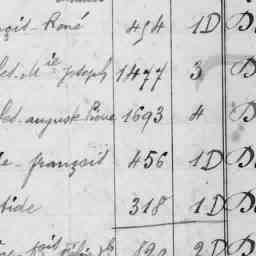 çois René 454 1D D
Ces. Mie joseph 1477 3 D
Ces. auguste Pierre 1693 4 D
e françois 456 1D D
tide 318 1D D
120 2D D